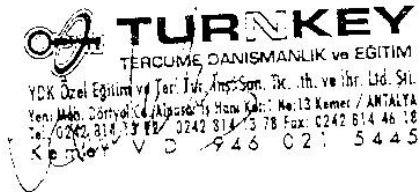 TURNKEY
TERCÜME DANIŞMANLIK ve EĞİTİM
YDK Özel Eğitim ve Ter. Tur. İnş. San. Tic. İth. ve İhr. Ltd. Şti.
Yeni Mah. Dörtyol Cd. İş Hanı Kat:1 No:13 Kemer / ANTALYA
Tel: 0242 814 13 0242 814 13 78 Fax: 0242 814 46 18
Kemer V D 946 021 5445